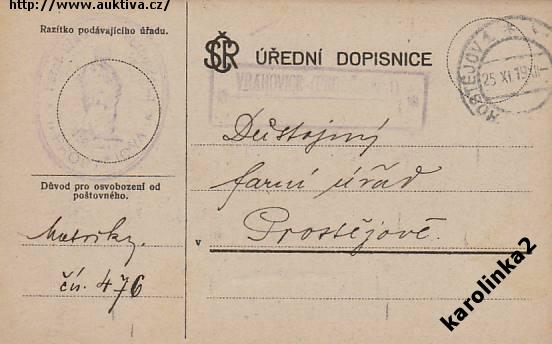 http://www.auktiva.cz/
Razítko podávajícího úřadu.
ČSR ÚŘEDNÍ DOPISNICE
VRAHOVICE
25 XI 19
Důstojný
farní úřad
v Prostějově.
Důvod pro osvobození od
poštovného.
Matriky.
čís. 476
karolinka2